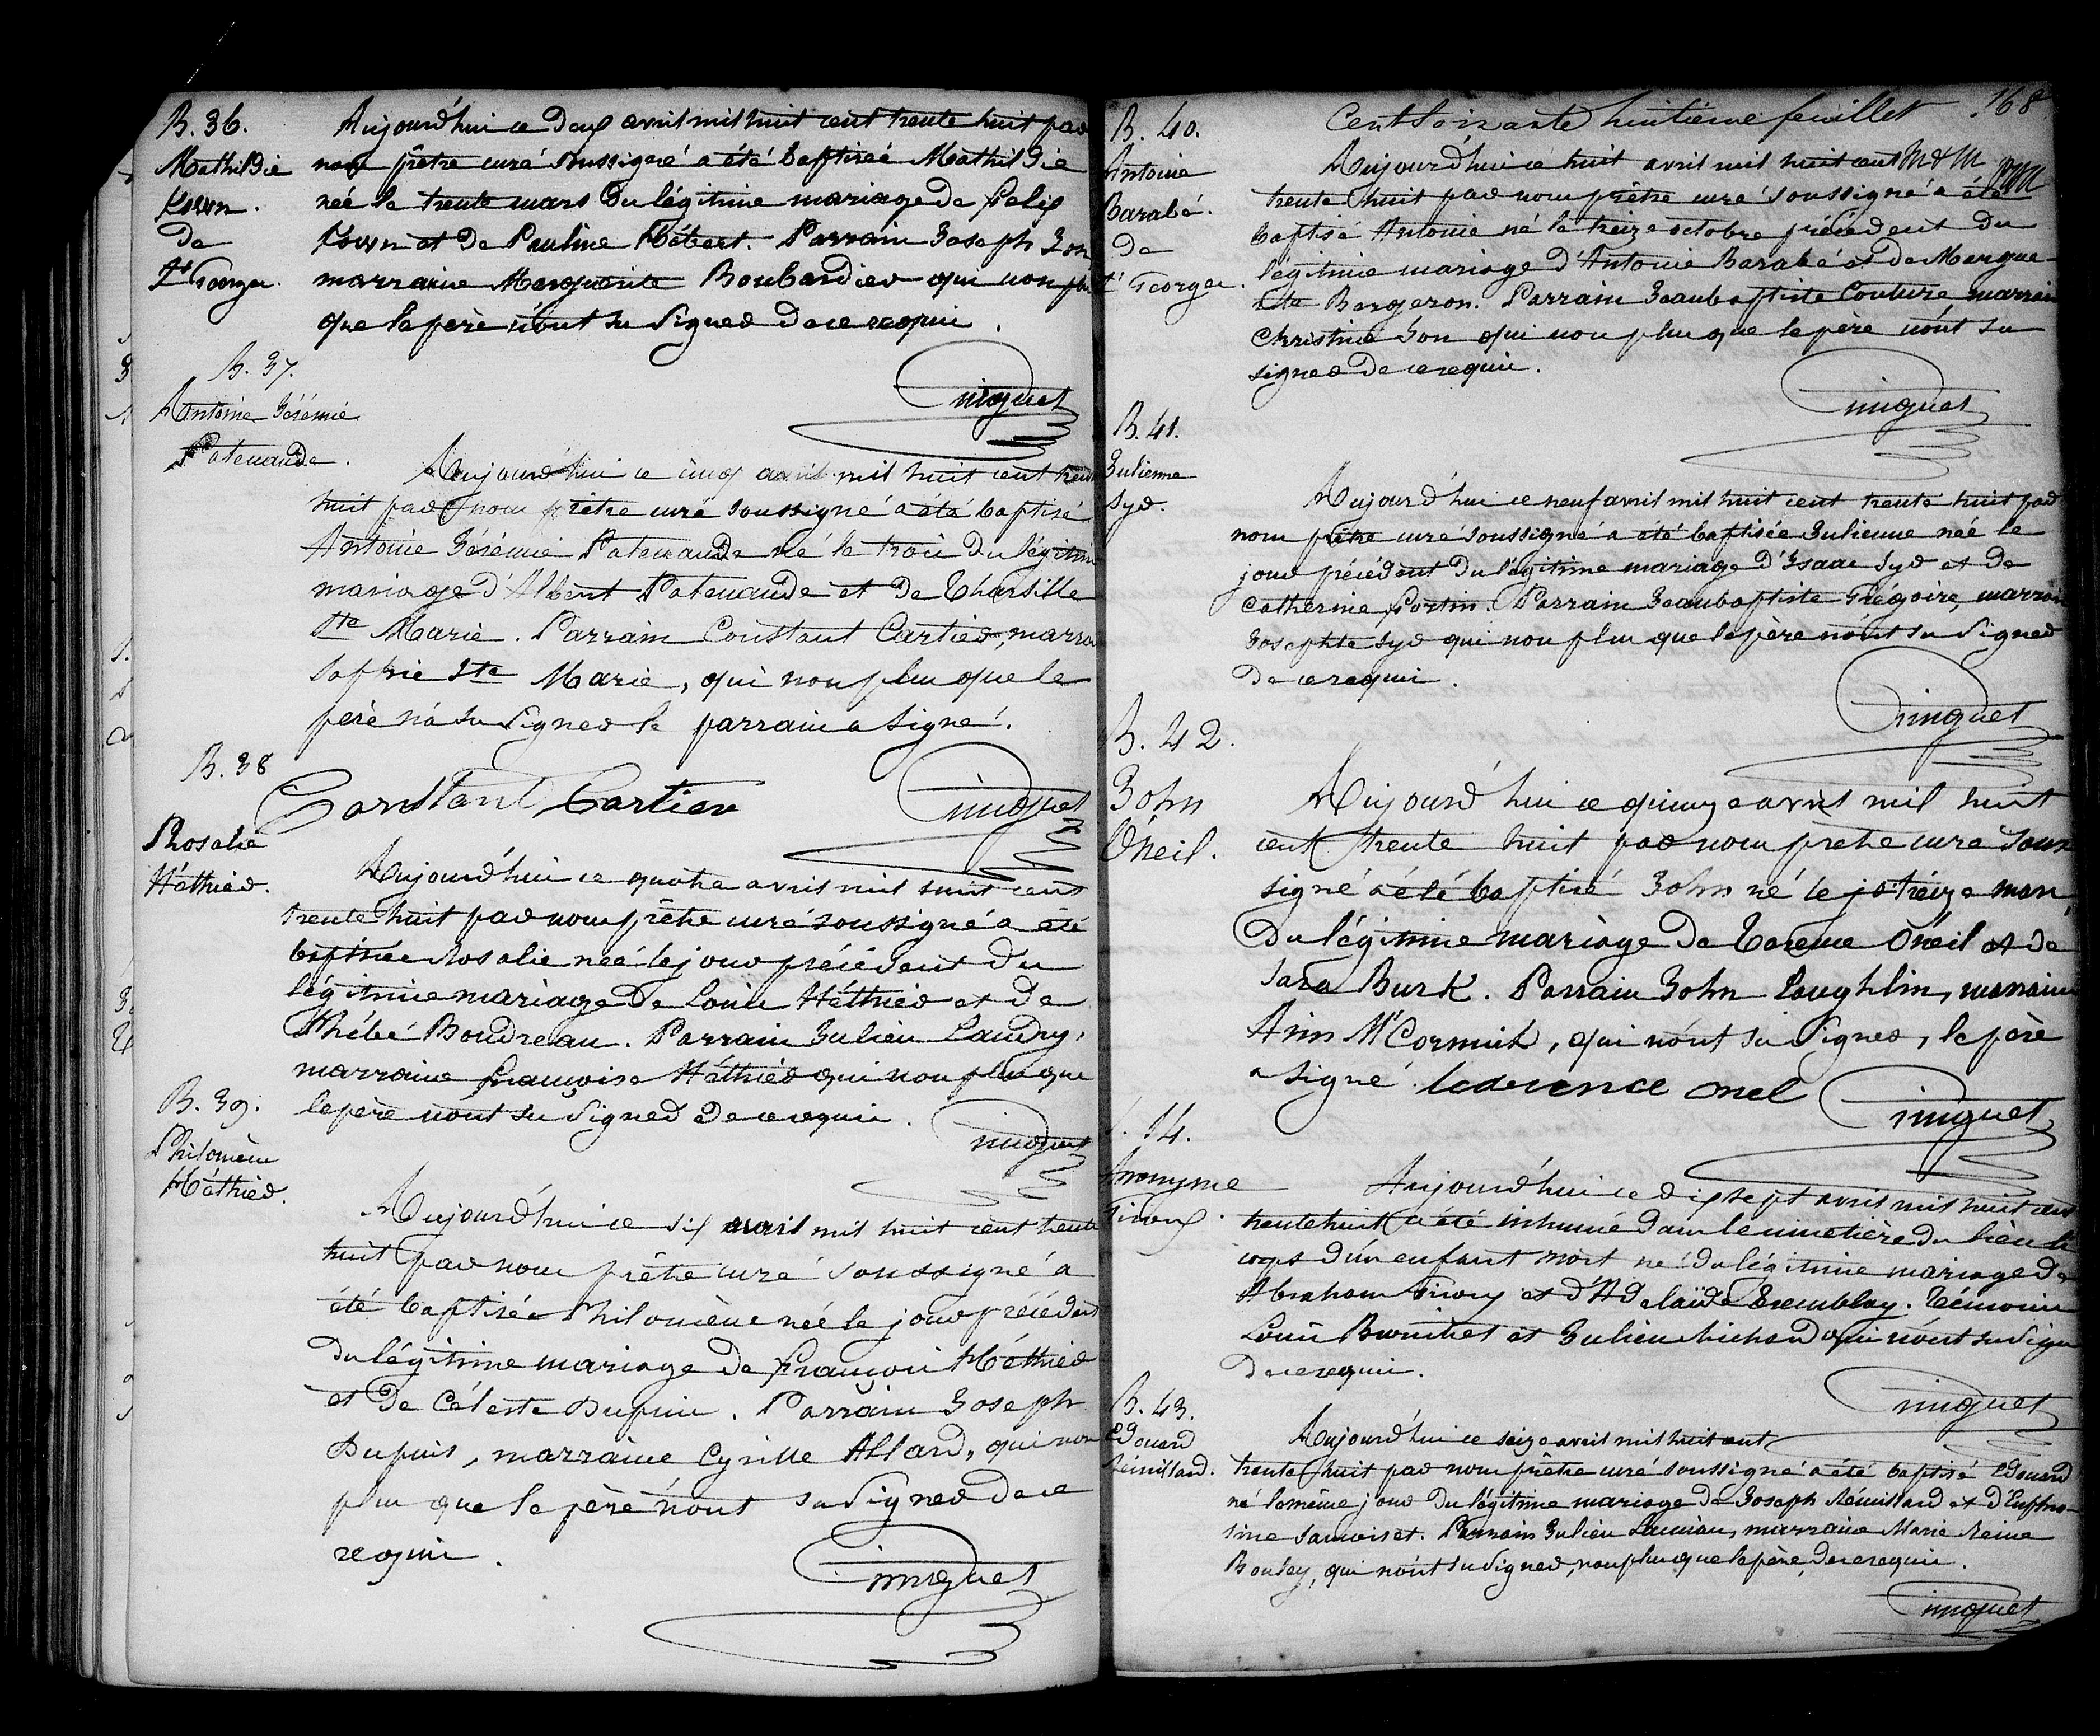 B. 36.
Mathildie
de
St George.
Aujourd'hui ce deux avril mil huit cent trente huit par
nous prêtre curé soussigné a été baptisée Mathildie
née le trente mars du légitime mariage de Felix
et de Pauline Hébert. Parrain Joseph
marraine Marguerite Bombardier qui non plus
que le père n'ont su signer de ce requis.
Pinguet
B. 37.
Antoine Jérémie
Patenaude.
Aujourd'hui ce cinq avril mil huit cent trente
huit par nous prêtre curé soussigné a été baptisé
Antoine Jérémie Patenaude né le trois du légitime
mariage d'Albert Patenaude et de Tharsille
Ste Marie. Parrain Constant Cartier, marraine
Sophie Ste Marie, qui non plus que le
père n'a su signer le parrain a signé.
Constant Cartier
Pinguet
B. 38
Rosalie
Héthier.
Aujourd'hui ce quatre avril mil huit cent
trente huit par nous prêtre curé soussigné a été
baptisée Rosalie née le jour précédent du
légitime mariage de Louis Héthier et de
Phébé Boudreau. Parrain Julien Landry,
marraine Françoise Héthier qui non plus que
le père n'ont su signer de ce requis.
Pinguet
B. 39.
Philomène
Héthier.
Aujourd'hui ce six avril mil huit cent trente
huit par nous prêtre curé soussigné a
été baptisée Philomène née le jour précédent
du légitime mariage de François Héthier
et de Céleste Dupuis. Parrain Joseph
Dupuis, marraine Cyrille Allard, qui non
plus que le père n'ont su signer de ce
requis.
Pinguet
168
Cent soixante huitième feuillet
B. 40.
Antoine
Barabé.
de
St George.
Aujourd'hui ce huit avril mil huit cent
trente huit par nous prêtre curé soussigné a été
baptisé Antoine né le treize octobre précédent du
légitime mariage d'Antoine Barabé et de Margue-
rite Bergeron. Parrain Jean baptiste Couture, marraine
Christine qui non plus que le père n'ont su
signer de ce requis.
Pinguet
B. 41.
Julienne
Syr.
Aujourd'hui ce neuf avril mil huit cent trente huit par
nous prêtre curé soussigné a été baptisée Julienne née le
jour précédent du légitime mariage d'Isaac Syr et de
Catherine Fortin. Parrain Jean baptiste Grégoire, marraine
Josephte Syr qui non plus que le père n'ont su signer
de ce requis.
Pinguet
B. 42.
John
O'neil.
Aujourd'hui ce quinze avril mil huit
cent trente huit par nous prêtre curé sous
signé a été baptisé John né le treize mars
du légitime mariage de Torence O'neil et de
Sara Burk. Parrain John Loughlin, marraine
Ann McCormick, qui n'ont su signer, le père
a signé. onel
Pinguet
14.
Anonyme
Aujourd'hui ce dix sept avril mil huit cent
trente huit a été inhumé dans le cimetière du lieu le
corps d'un enfant mort né du légitime mariage de
Abraham et d'Adelaïde Tremblay. Témoins
Louis et Julien Michaud qui n'ont su signer
de ce requis.
Pinguet
B. 43.
Edouard
Rémillard.
Aujourd'hui ce seize avril mil huit cent
trente huit par nous prêtre curé soussigné a été baptisé Edouard
né le même jour du légitime mariage de Joseph Rémillard et d'Euphro-
sine Parrain Julien marraine Marie Reine
qui n'ont su signer, non plus que le père, de ce requis.
Pinguet